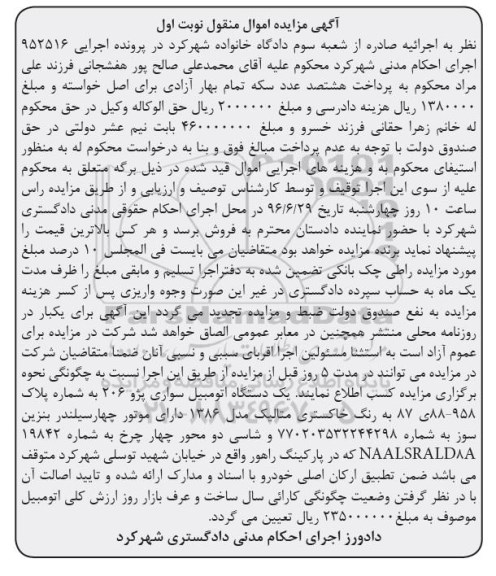 آگهی مزایده اموال منقول نوبت اول
نظر به اجرائیه صادره از شعبه سوم دادگاه خانواده شهرکرد در پرونده اجرایی ۹۵۲۵۱۶
اجرای احکام مدنی شهرکرد محکوم علیه آقای محمدعلی صالح پور هفشجانی فرزند علی
مراد محکوم به پرداخت هشتصد عدد سکه تمام بهار آزادی برای اصل خواسته و مبلغ
۱۳۸۰۰۰۰ ریال هزینه دادرسی و مبلغ ۲۰۰۰۰۰۰ ریال حق الوکاله وکیل در حق محکوم
له خانم زهرا حقانی فرزند خسرو و مبلغ ۴۶۰۰۰۰۰۰۰ بابت نیم عشر دولتی در حق
صندوق دولت با توجه به عدم پرداخت مبالغ فوق و بنا به درخواست محکوم له به منظور
استیفای محکوم به و هزینه های اجرایی اموال قید شده در ذیل برگه متعلق به محکوم
علیه از سوی این اجرا توقیف و توسط کارشناس توصیف و ارزیابی و از طریق مزایده راس
ساعت ۱۰ روز چهارشنبه تاریخ ۹۶/۶/۲۹ در محل اجرای احکام حقوقی مدنی دادگستری
شهرکرد با حضور نماینده دادستان محترم به فروش برسد و هر کس بالاترین قیمت را
پیشنهاد نماید برنده مزایده خواهد بود متقاضیان می بایست فی المجلس ۱۰ درصد مبلغ
مورد مزایده راطی چک بانکی تضمین شده به دفتراجرا تسلیم و مابقی مبلغ را ظرف مدت
یک ماه به حساب سپرده دادگستری در غیر این صورت وجوه واریزی پس از کسر هزینه
مزایده به نفع صندوق دولت ضبط و مزایده تجدید می گردد این آگهی برای یکبار در
روزنامه محلی منتشر همچنین در معابر عمومی الصاق خواهد شد شرکت در مزایده برای
عموم آزاد است به استثنا مسئولین اجرا اقربای سببی و نسبی آنان ضمنا متقاضیان شرکت
در مزایده می توانند در مدت ۵ روز قبل از مزایده از طریق این اجرا نسبت به چگونگی نحوه
برگزاری مزایده کسب اطلاع نمایند. یک دستگاه اتومبیل سواری پژو ۲۰۶ به شماره پلاک
۹۵۸-۸۸ی ۸۷ به رنگ خاکستری متالیک مدل ۱۳۸۶ دارای موتور چهارسیلندر بنزین
سوز به شماره ۷۷۰۲۰۳۵۳۲۲۴۴۲۹۸ و شاسی دو محور چهار چرخ به شماره ۱۹۸۴۲
NAALSRALD۸A که در پارکینگ راهور واقع در خیابان شهید توسلی شهرکرد متوقف
می باشد ضمن تطبیق ارکان اصلی خودرو با اسناد و مدارک ارائه شده و تایید اصالت آن
با در نظر گرفتن وضعیت چگونگی کارائی سال ساخت و عرف بازار روز ارزش کلی اتومبیل
موصوف به مبلغ۲۳۵۰۰۰۰۰۰ ریال تعیین می گردد.
دادورز اجرای احکام مدنی دادگستری شهرکرد